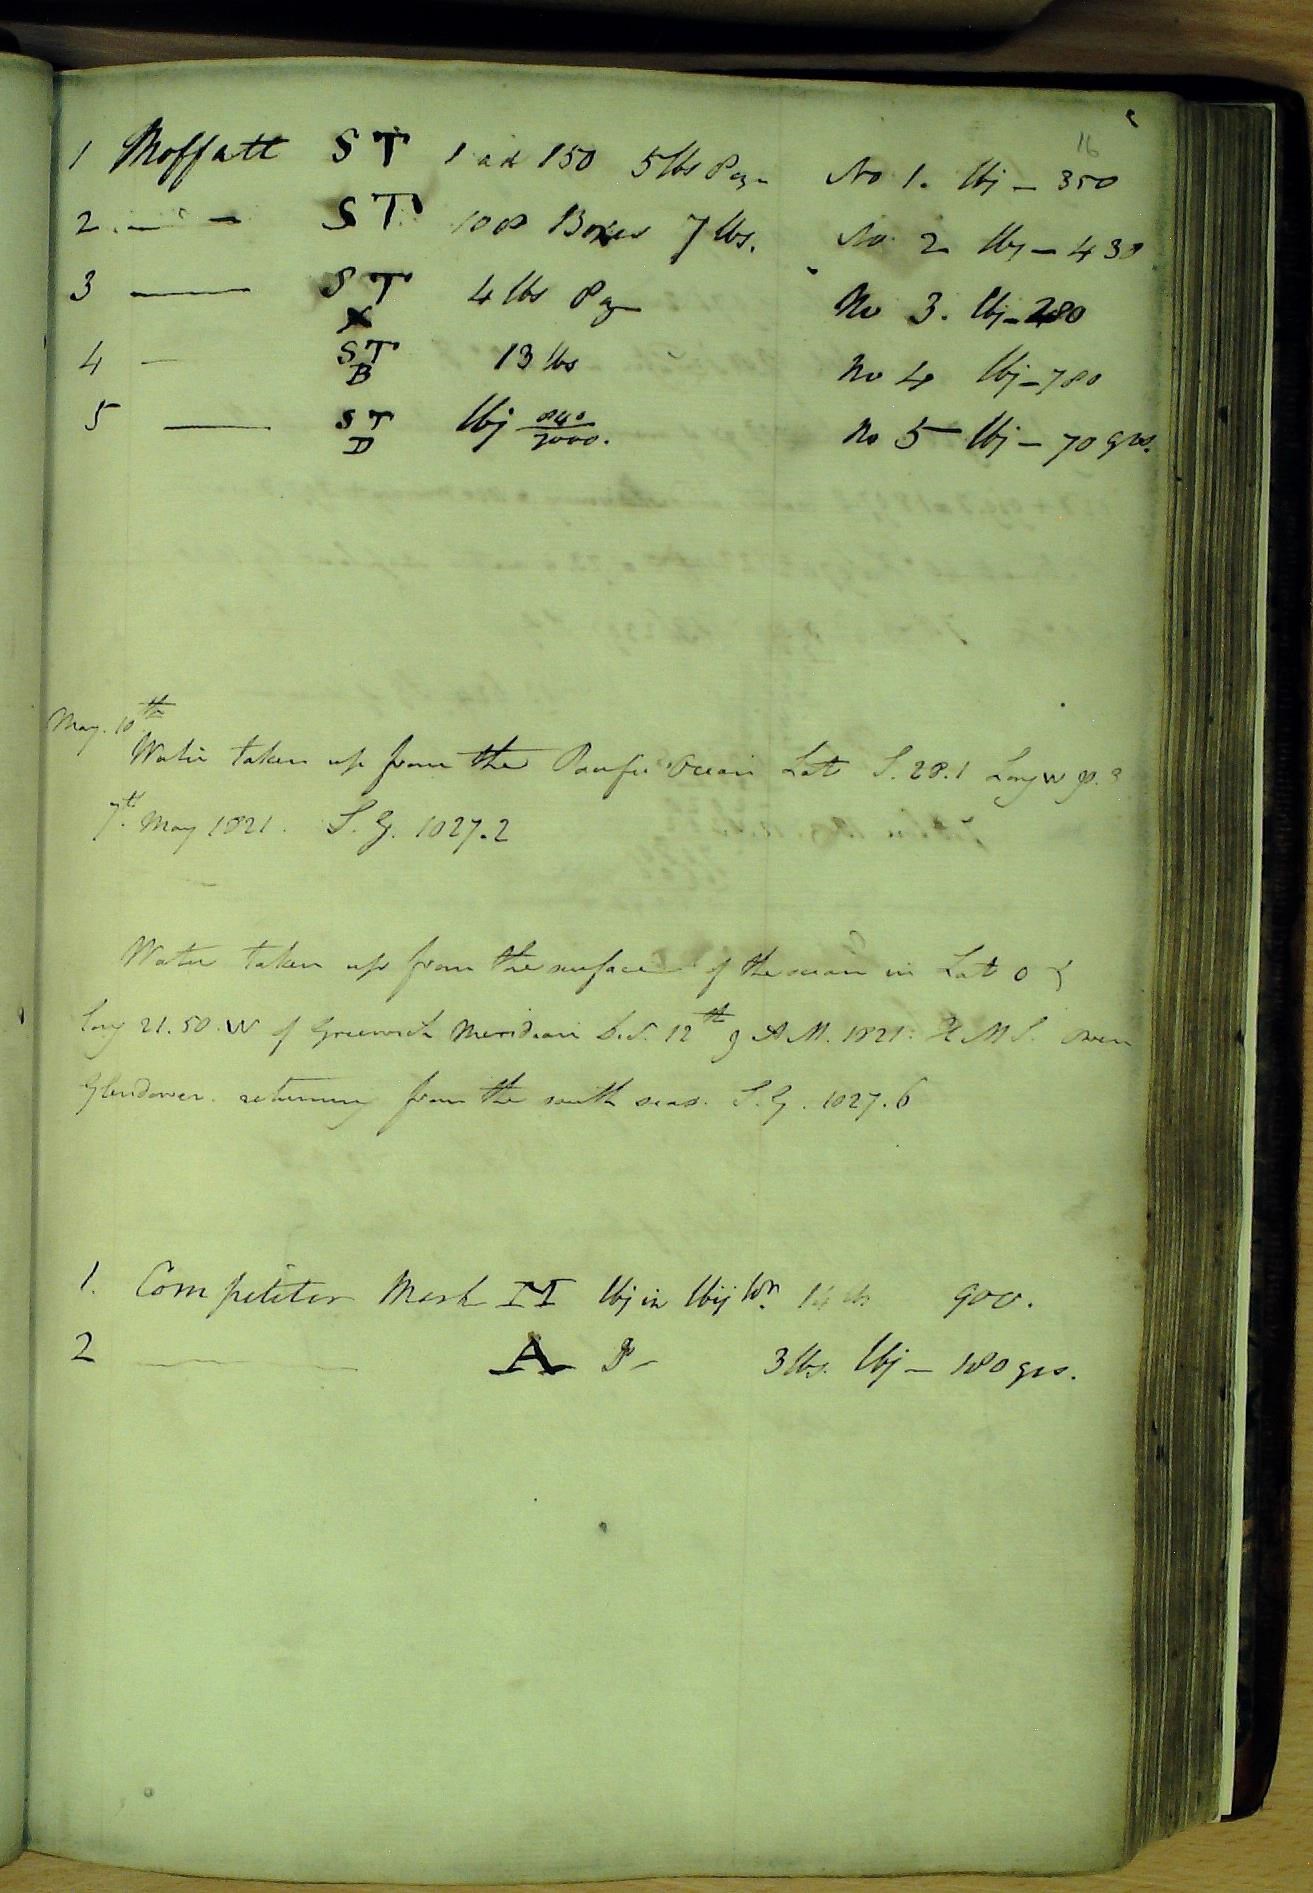 16
1 Moffatt S T 1 ad 150 5 lbs No 1. lbj – 350
2 — — S T 100 Boxes 7 lbs. No 2 lbj – 430
3 — S T 4 lbs No 3. lbj – 280
X
4 — S T 13 lbs No 4 lbj – 780
B
5 — S T lbj 840/7000. No 5 lbj – 70 grs.
D
May. 10th
Water taken up from the Pacific Ocean Lat S. 28.1 Long W
7th. May 1821. S.G. 1027.2
Water taken up from the surface of the ocean in Lat 0
Long 21.50. W of Greenwich Meridian 12th 9 A.M. 1821. H M S. Owen
Glendower. returning from the south seas. S.G. 1027.6
1. Competitor Mark H lbj in lbij 900.
2 — A 3 lbs. lbj – 180 grs.